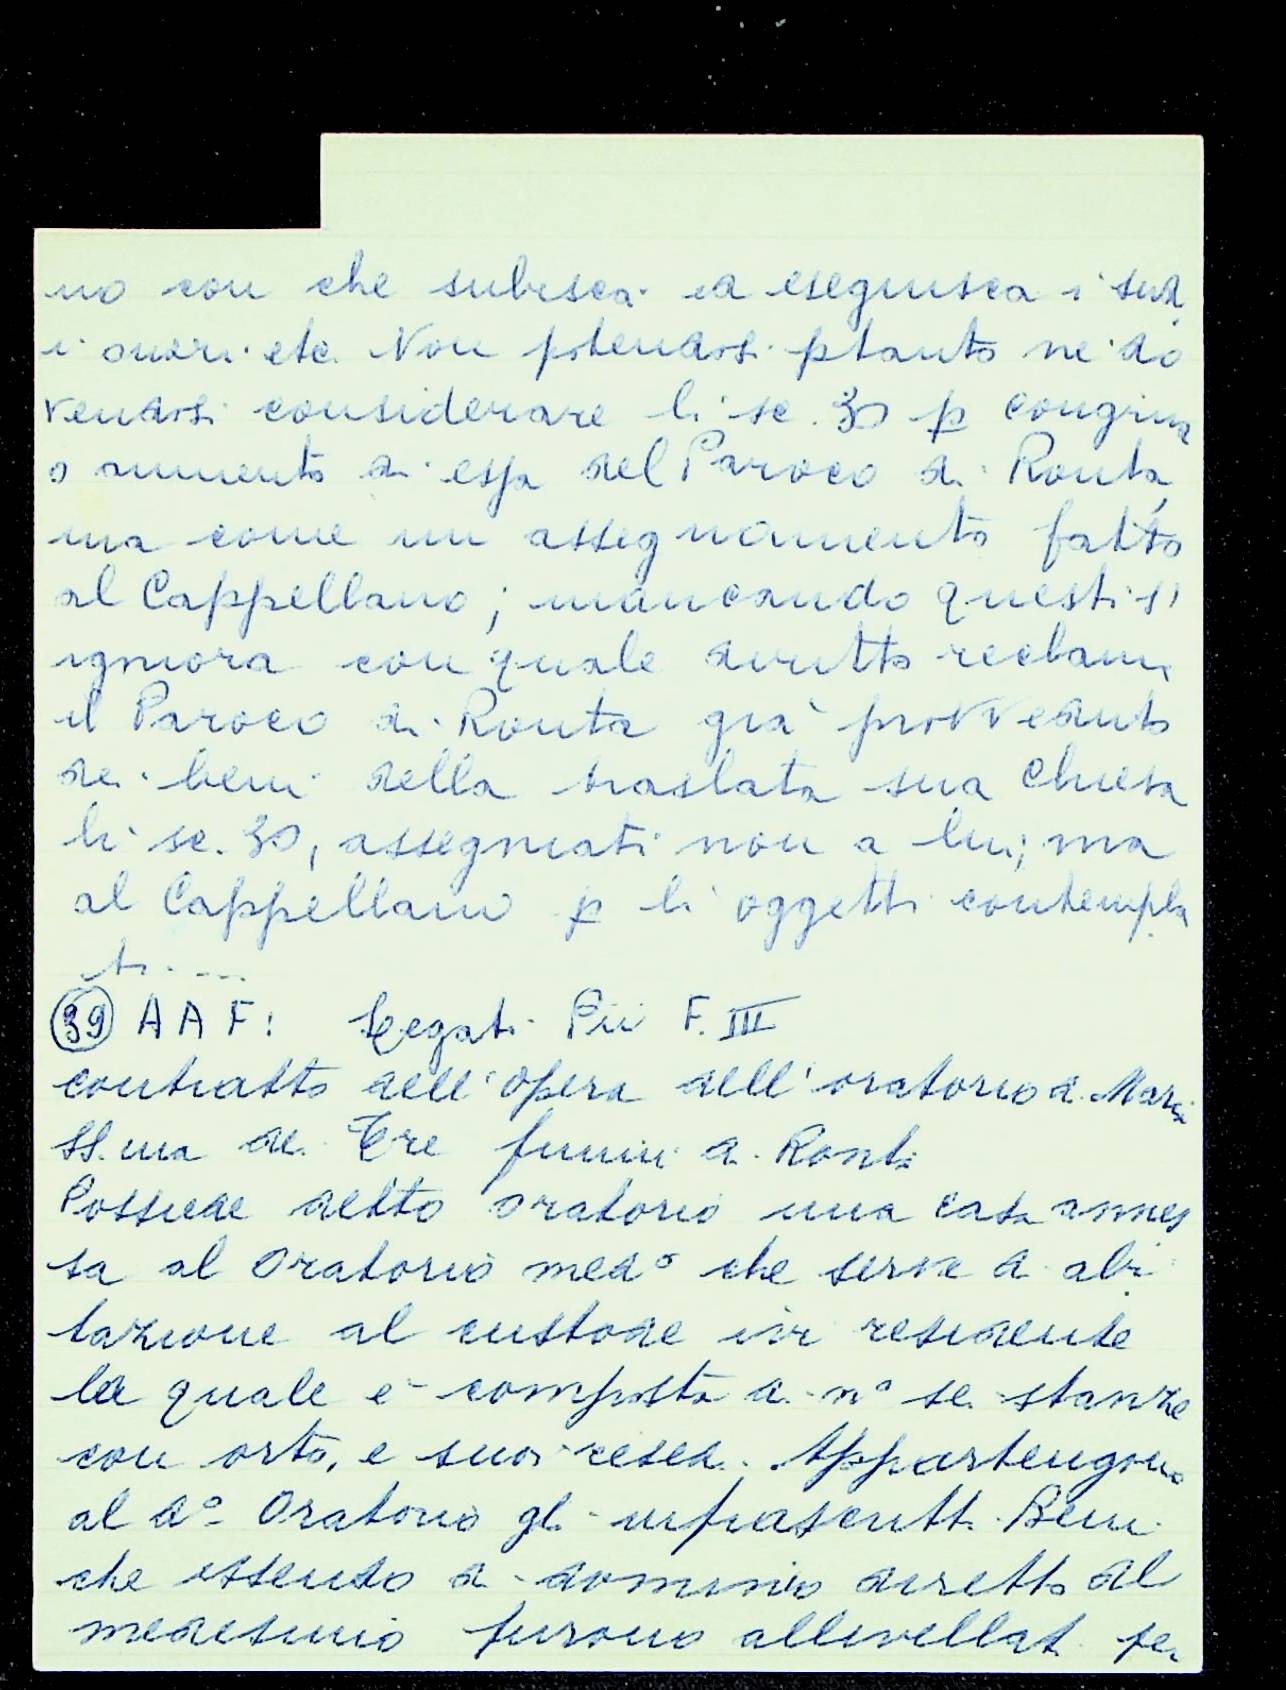 no con che subisca ed eseguisca i sud
i oneri etc. Non potendosi ptanto ne do
vendosi considerare li sc. 30 p congrua
o aumento di essa del Paroco di Ronta,
ma come un assegnamento fatto
al Cappellano; mancando questi si
ignora con quale diritto reclami
il Paroco di Ronta già provveduto
dei beni della traslata sua Chiesa
li sc. 30, assegnati non a lui; ma
al Cappellano p li oggetti contempla
ti. ...
(39) AAF: Legati Pii F. III
contratto dell'opera dell'oratorio di Maria
SS.ma dei Tre fiumi di Ronta
Possiede detto oratorio una casa annes
sa al Oratorio medo che serve di abi
tazione al custode ivi residente
la quale è composta di no sei stanze
con orto, e suoi resedi. Appartengono
al do Oratorio gli infrascritti Beni
che essendo di dominio diretto del
medesimo furono allivellati pe